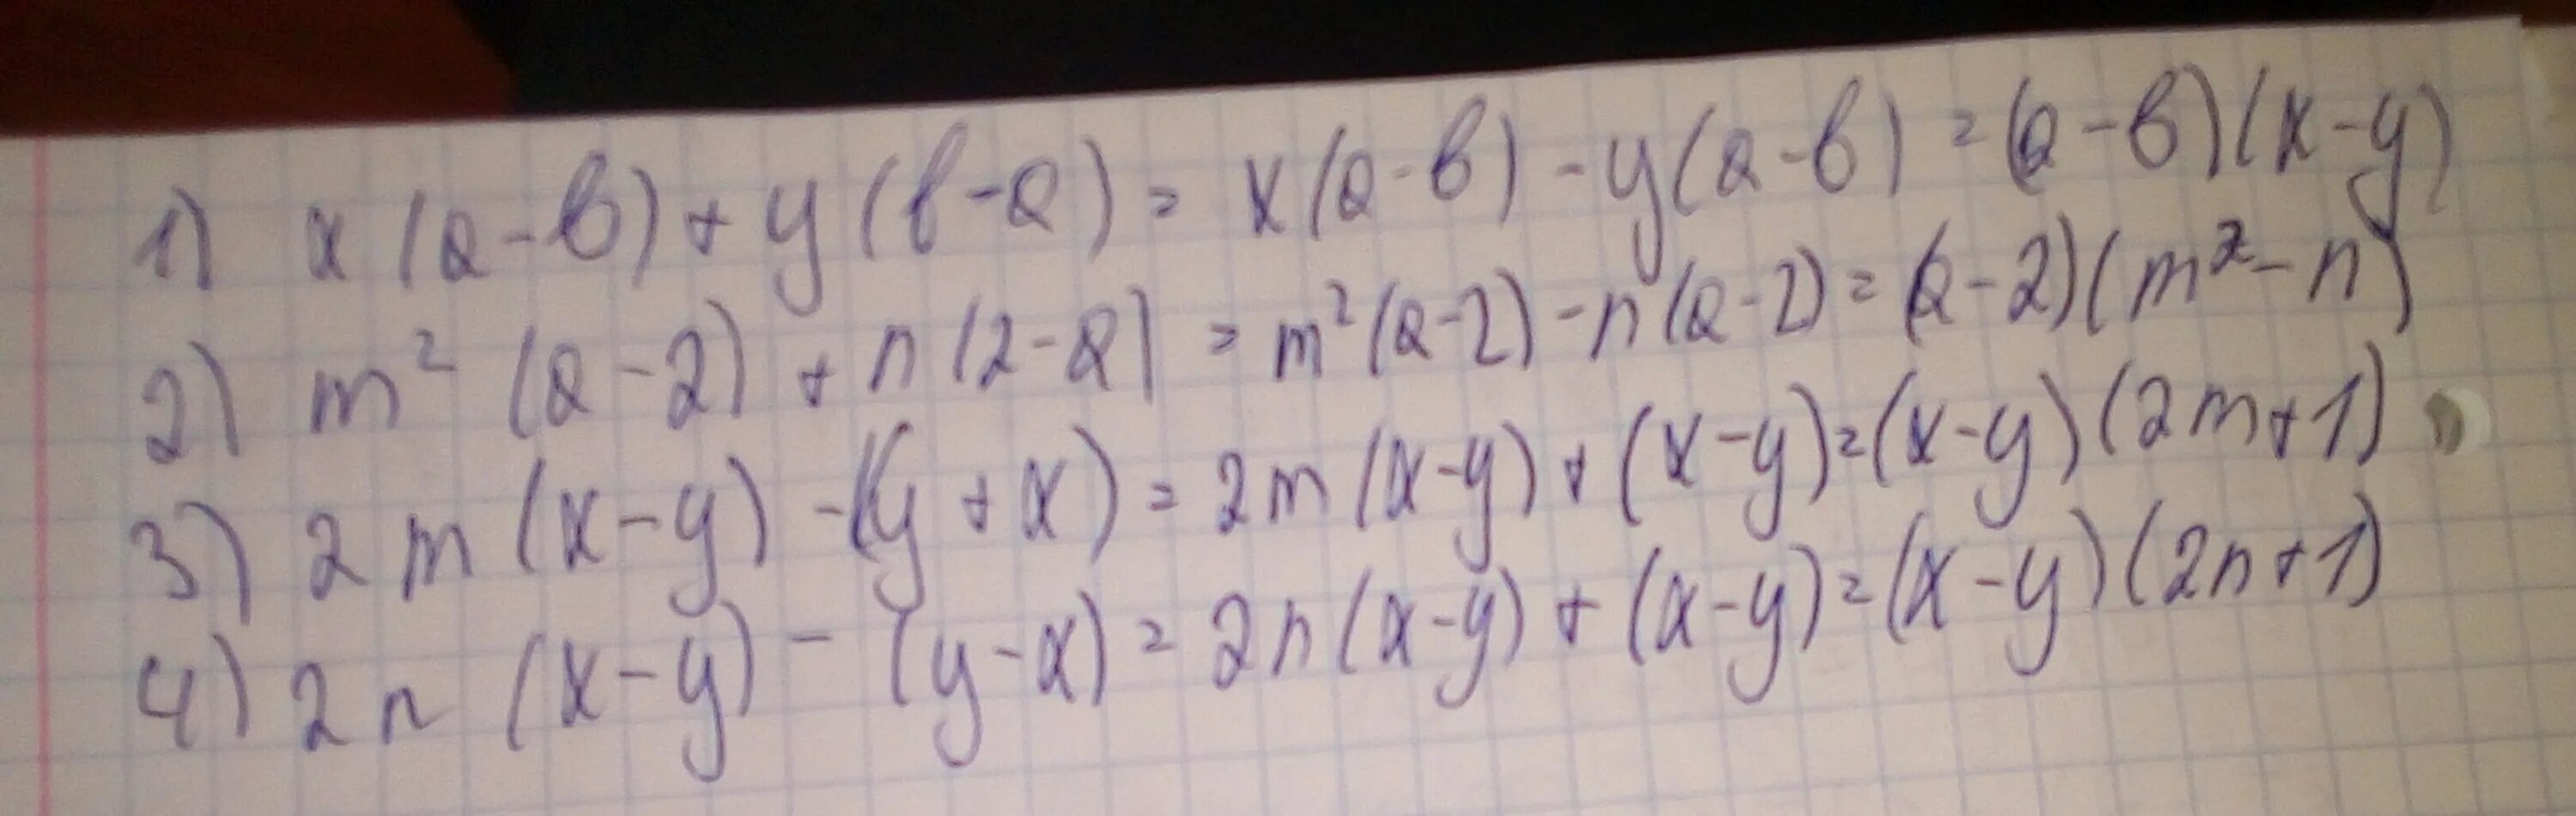 1) x(a-b)+y(b-a)=x(a-b)-y(a-b)=(a-b)(x-y)
2) m²(a-2)+n(2-a)=m²(a-2)-n(a-2)=(a-2)(m²-n)
3) 2m(x-y)-(y+x)=2m(x-y)+(x-y)=(x-y)(2m+1)
4) 2n(x-y)-(y-x)=2n(x-y)+(x-y)=(x-y)(2n+1)